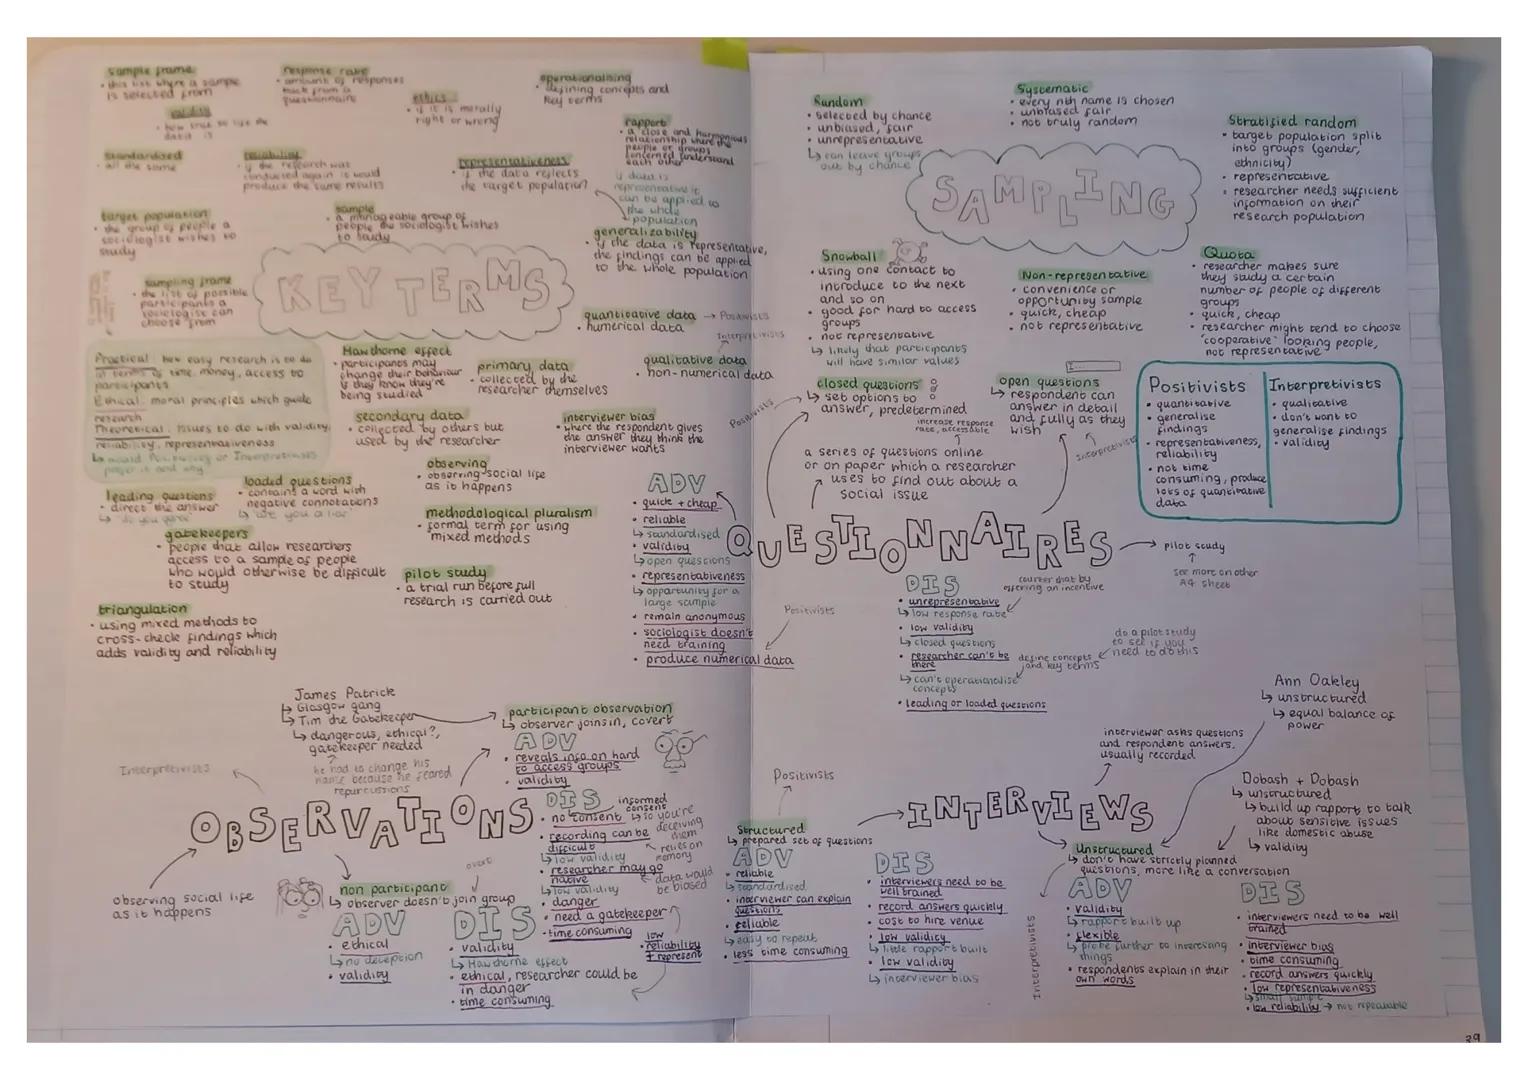 sample frame
• this list where a sample
is selected from
response rate
• amount of responses
back from a
questionnaire
validity
• how true to life the
data is
ethics
• if it is morally
right or wrong
operationalising
• defining concepts and
key terms
rapport
• a close and harmonious
relationship where the
people or groups
concerned understand
each other
standardised
• all the same
reliability
• if the research was
conducted again it would
produce the same results
representativeness
• if the data reflects
the target population
if data is
representative it
can be applied to
the whole
population
target population
• the group of people a
sociologist wishes to
study
sample
• a manageable group of
people the sociologist wishes
to study
generalizability
• if the data is representative,
the findings can be applied
to the whole population
sampling frame
• the list of possible
participants a
sociologist can
choose from
KEY TERMS
quantitative data → Positivists
• numerical data
Interpretivists
qualitative data
• non-numerical data
Practical: how easy research is to do
in terms of time, money, access to
participants
Ethical: moral principles which guide
research
Theoretical: issues to do with validity,
reliability, representativeness
↳ would Positivists or Interpretivists
prefer it and why?
Hawthorne effect
• participants may
change their behaviour
if they know they're
being studied
primary data
• collected by the
researcher themselves
secondary data
• collected by others but
used by the researcher
interviewer bias
• where the respondent gives
the answer they think the
interviewer wants
observing
• observing social life
as it happens
leading questions
• direct the answer
↳ "do you agree"
loaded questions
• contains a word with
negative connotations
↳ "are you a liar"
methodological pluralism
• formal term for using
mixed methods
gatekeepers
• people that allow researchers
access to a sample of people
who would otherwise be difficult
to study
pilot study
• a trial run before full
research is carried out
triangulation
• using mixed methods to
cross-check findings which
adds validity and reliability
Random
• selected by chance
• unbiased, fair
• unrepresentative
↳ can leave groups
out by chance
Systematic
• every nth name is chosen
• unbiased fair
• not truly random
Stratified random
• target population split
into groups (gender,
ethnicity)
• representative
• researcher needs sufficient
information on their
research population
SAMPLING
Snowball
• using one contact to
introduce to the next
and so on
• good for hard to access
groups
• not representative
↳ likely that participants
will have similar values
Non-representative
• convenience or
opportunity sample
• quick, cheap
• not representative
Quota
• researcher makes sure
they study a certain
number of people of different
groups
• quick, cheap
• researcher might tend to choose
'cooperative' looking people,
not representative
Positivists
closed questions
↳ set options to
answer, predetermined
increase response
rate, accessable
open questions
↳ respondent can
answer in detail
and fully as they
wish
Interpretivists
Positivists
• quantitative
• generalise
findings
• representativeness,
reliability
• not time
consuming, produce
lots of quantitative
data
Interpretivists
• qualitative
• don't want to
generalise findings
• validity
a series of questions online
or on paper which a researcher
uses to find out about a
social issue
QUESTIONNAIRES
→ pilot study
see more on other
A4 sheet
ADV
• quick + cheap
• reliable
↳ standardised
• validity
↳ open questions
• representativeness
↳ opportunity for a
large sample
• remain anonymous
• sociologist doesn't
need training
• produce numerical data
Positivists
DIS
• unrepresentative
↳ low response rate
counter that by
offering an incentive
• low validity
↳ closed questions
• researcher can't be
there
↳ can't operationalise
concepts
define concepts
and key terms
do a pilot study
to see if you
need to do this
• leading or loaded questions
James Patrick
↳ Glasgow gang
↳ Tim the Gatekeeper
↳ dangerous, ethical?,
gatekeeper needed
he had to change his
name because he feared
repurcussions
Interpretivists
OBSERVATIONS
observing social life
as it happens
participant observation
↳ observer joins in, covert
ADV
• reveals info on hard
to access groups
• validity
DIS
• no consent
informed
consent
↳ so you're
deceiving
them
• recording can be
difficult
↳ low validity
relies on
memory
• researcher may go
native
↳ low validity
data would
be biased
• danger
• need a gatekeeper
• time consuming
• low
reliability
+ represent
overt
non participant
↳ observer doesn't join group
ADV
• ethical
↳ no deception
• validity
DIS
• validity
↳ Hawthorne effect
• ethical, researcher could be
in danger
• time consuming
INTERVIEWS
interviewer asks questions
and respondent answers.
usually recorded
Ann Oakley
↳ unstructured
↳ equal balance of
power
Dobash + Dobash
↳ unstructured
↳ build up rapport to talk
about sensitive issues
like domestic abuse
↳ validity
Positivists
Structured
↳ prepared set of questions
ADV
• reliable
↳ standardised
• interviewer can explain
questions
• reliable
↳ easy to repeat
• less time consuming
DIS
• interviewers need to be
well trained
• record answers quickly
• cost to hire venue
• low validity
↳ little rapport built
• low validity
↳ interviewer bias
Interpretivists
Unstructured
↳ don't have strictly planned
questions, more like a conversation
ADV
• validity
↳ rapport built up
• flexible
↳ probe further to interesting
things
• respondents explain in their
own words
DIS
• interviewers need to be well
trained
• interviewer bias
• time consuming
• record answers quickly
• low representativeness
↳ small sample
• low reliability → not repeatable
39